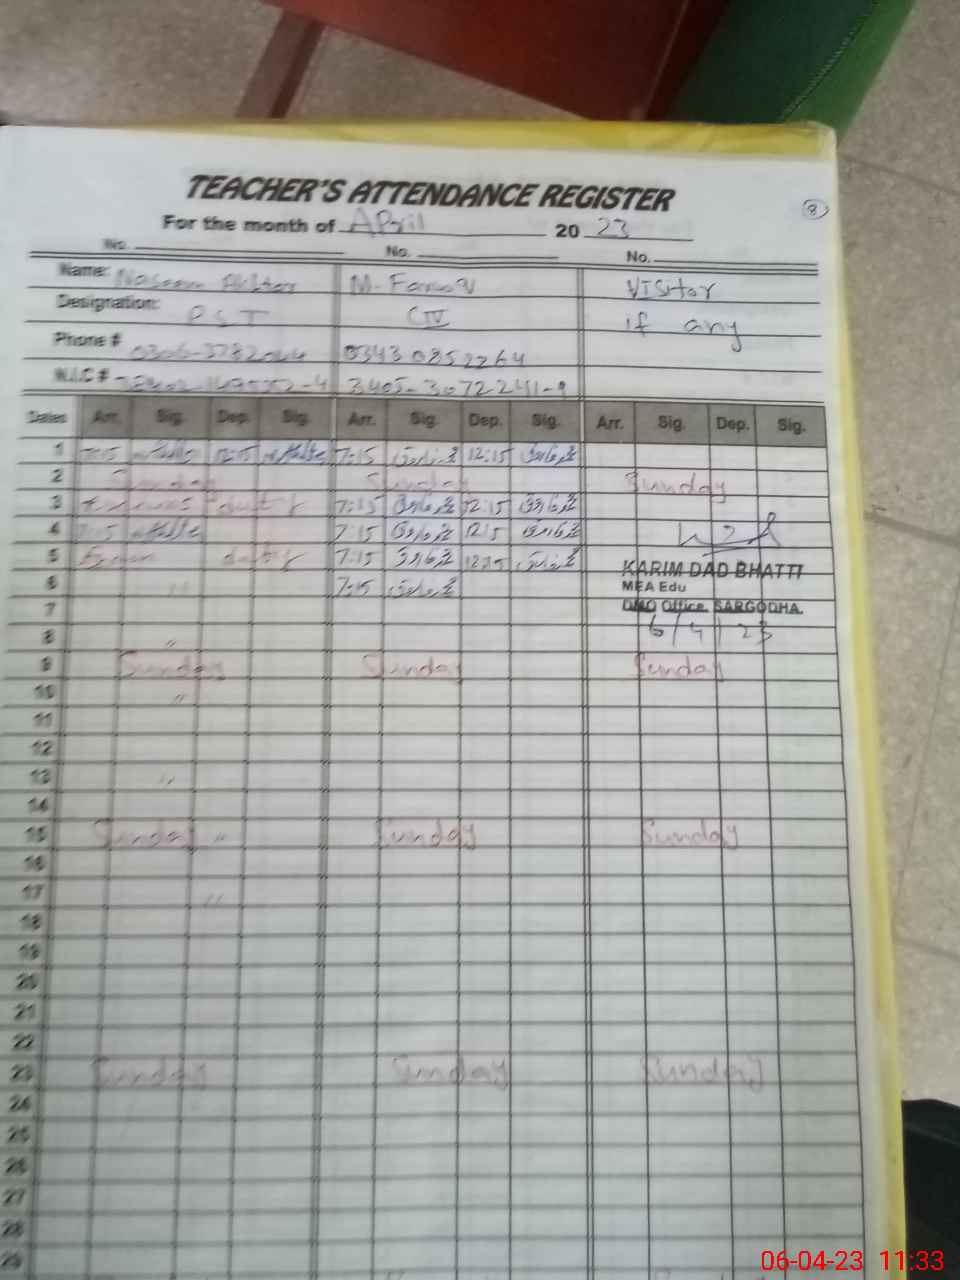 TEACHER'S ATTENDANCE REGISTER
8
For the month of April 2023
No. No. No.
Name: Naseem Akhtar M. Farooq Visitor
Designation: PST CIV if any
Phone # 0343 0852264
N.I.C #
Dates Arr. Sig. Dep. Sig. Arr. Sig. Dep. Sig. Arr. Sig. Dep. Sig.
1 7:15 12:15 7:15 محمد فاروق 12:15 محمد فاروق
2 Sunday Sunday Sunday
3 duty 7:15 محمد فاروق 12:15 محمد فاروق
4 7:15 7:15 محمد فاروق 12:15 محمد فاروق
5 Exam duty 7:15 محمد فاروق 12:15 محمد فاروق
KARIM DAD BHATTI
6 " 7:15 محمد فاروق MEA Edu
7 DMO Office SARGODHA
8 " 6/4/23
9 Sunday Sunday Sunday
10 "
11
12
13 "
14
15 Sunday " Sunday Sunday
16
17 "
18
19
20
21
22
23 Sunday Sunday Sunday
24
25
26
27
28
29
06-04-23 11:33